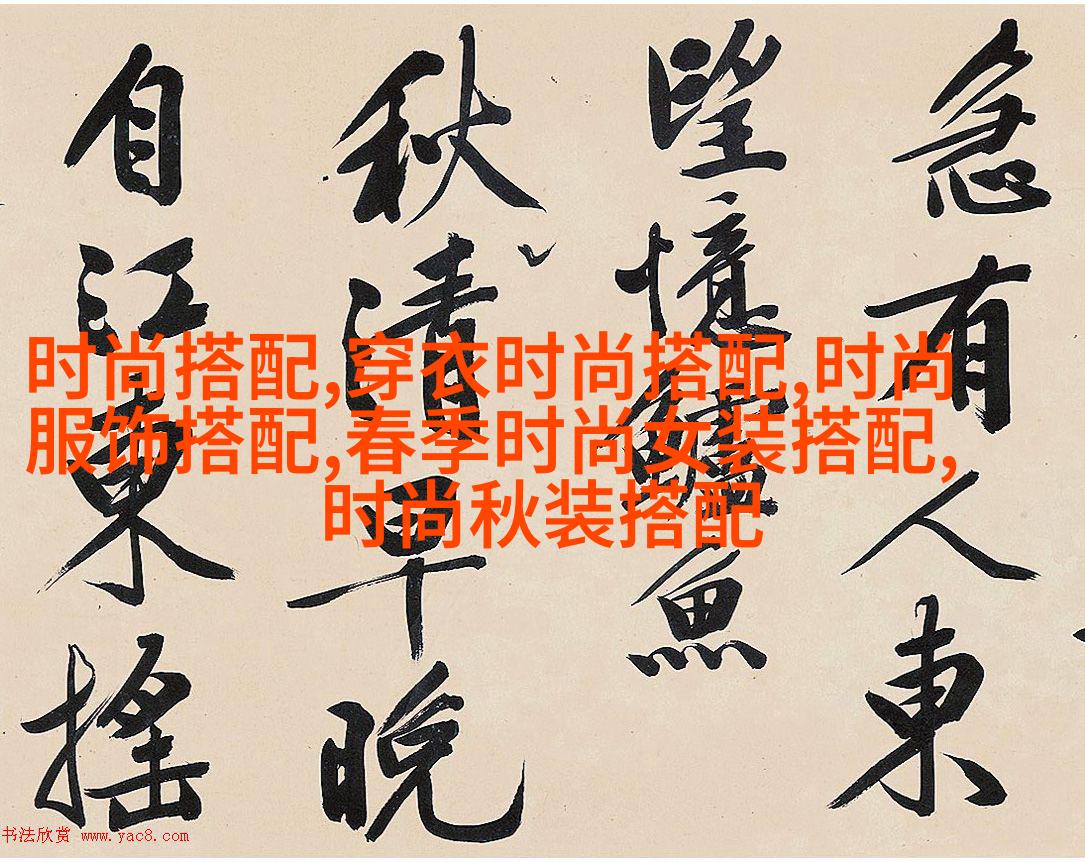 急有人東
望憶鱸魚
秋清早晚
自江東搖
时尚搭配,穿衣时尚搭配,时尚
服饰搭配,春季时尚女装搭配,
时尚秋装搭配
书法欣赏 www.yac8.com